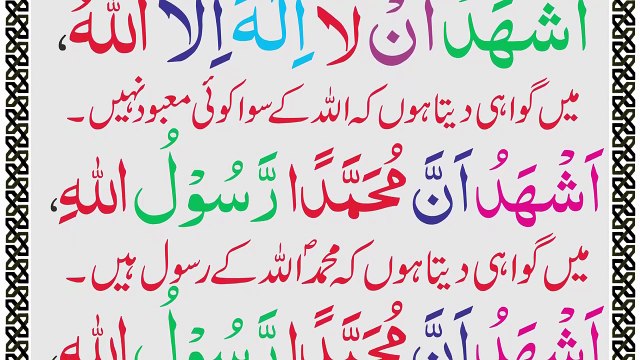 اَشْهَدُ اَنْ لَا اِلٰهَ اِلَّا اللهُ،
میں گواہی دیتا ہوں کہ اللہ کے سوا کوئی معبود نہیں۔
اَشْهَدُ اَنَّ مُحَمَّدًا رَّسُوْلُ اللهِ،
میں گواہی دیتا ہوں کہ محمدؐ اللہ کے رسول ہیں۔
اَشْهَدُ اَنَّ مُحَمَّدًا رَّسُوْلُ اللهِ،